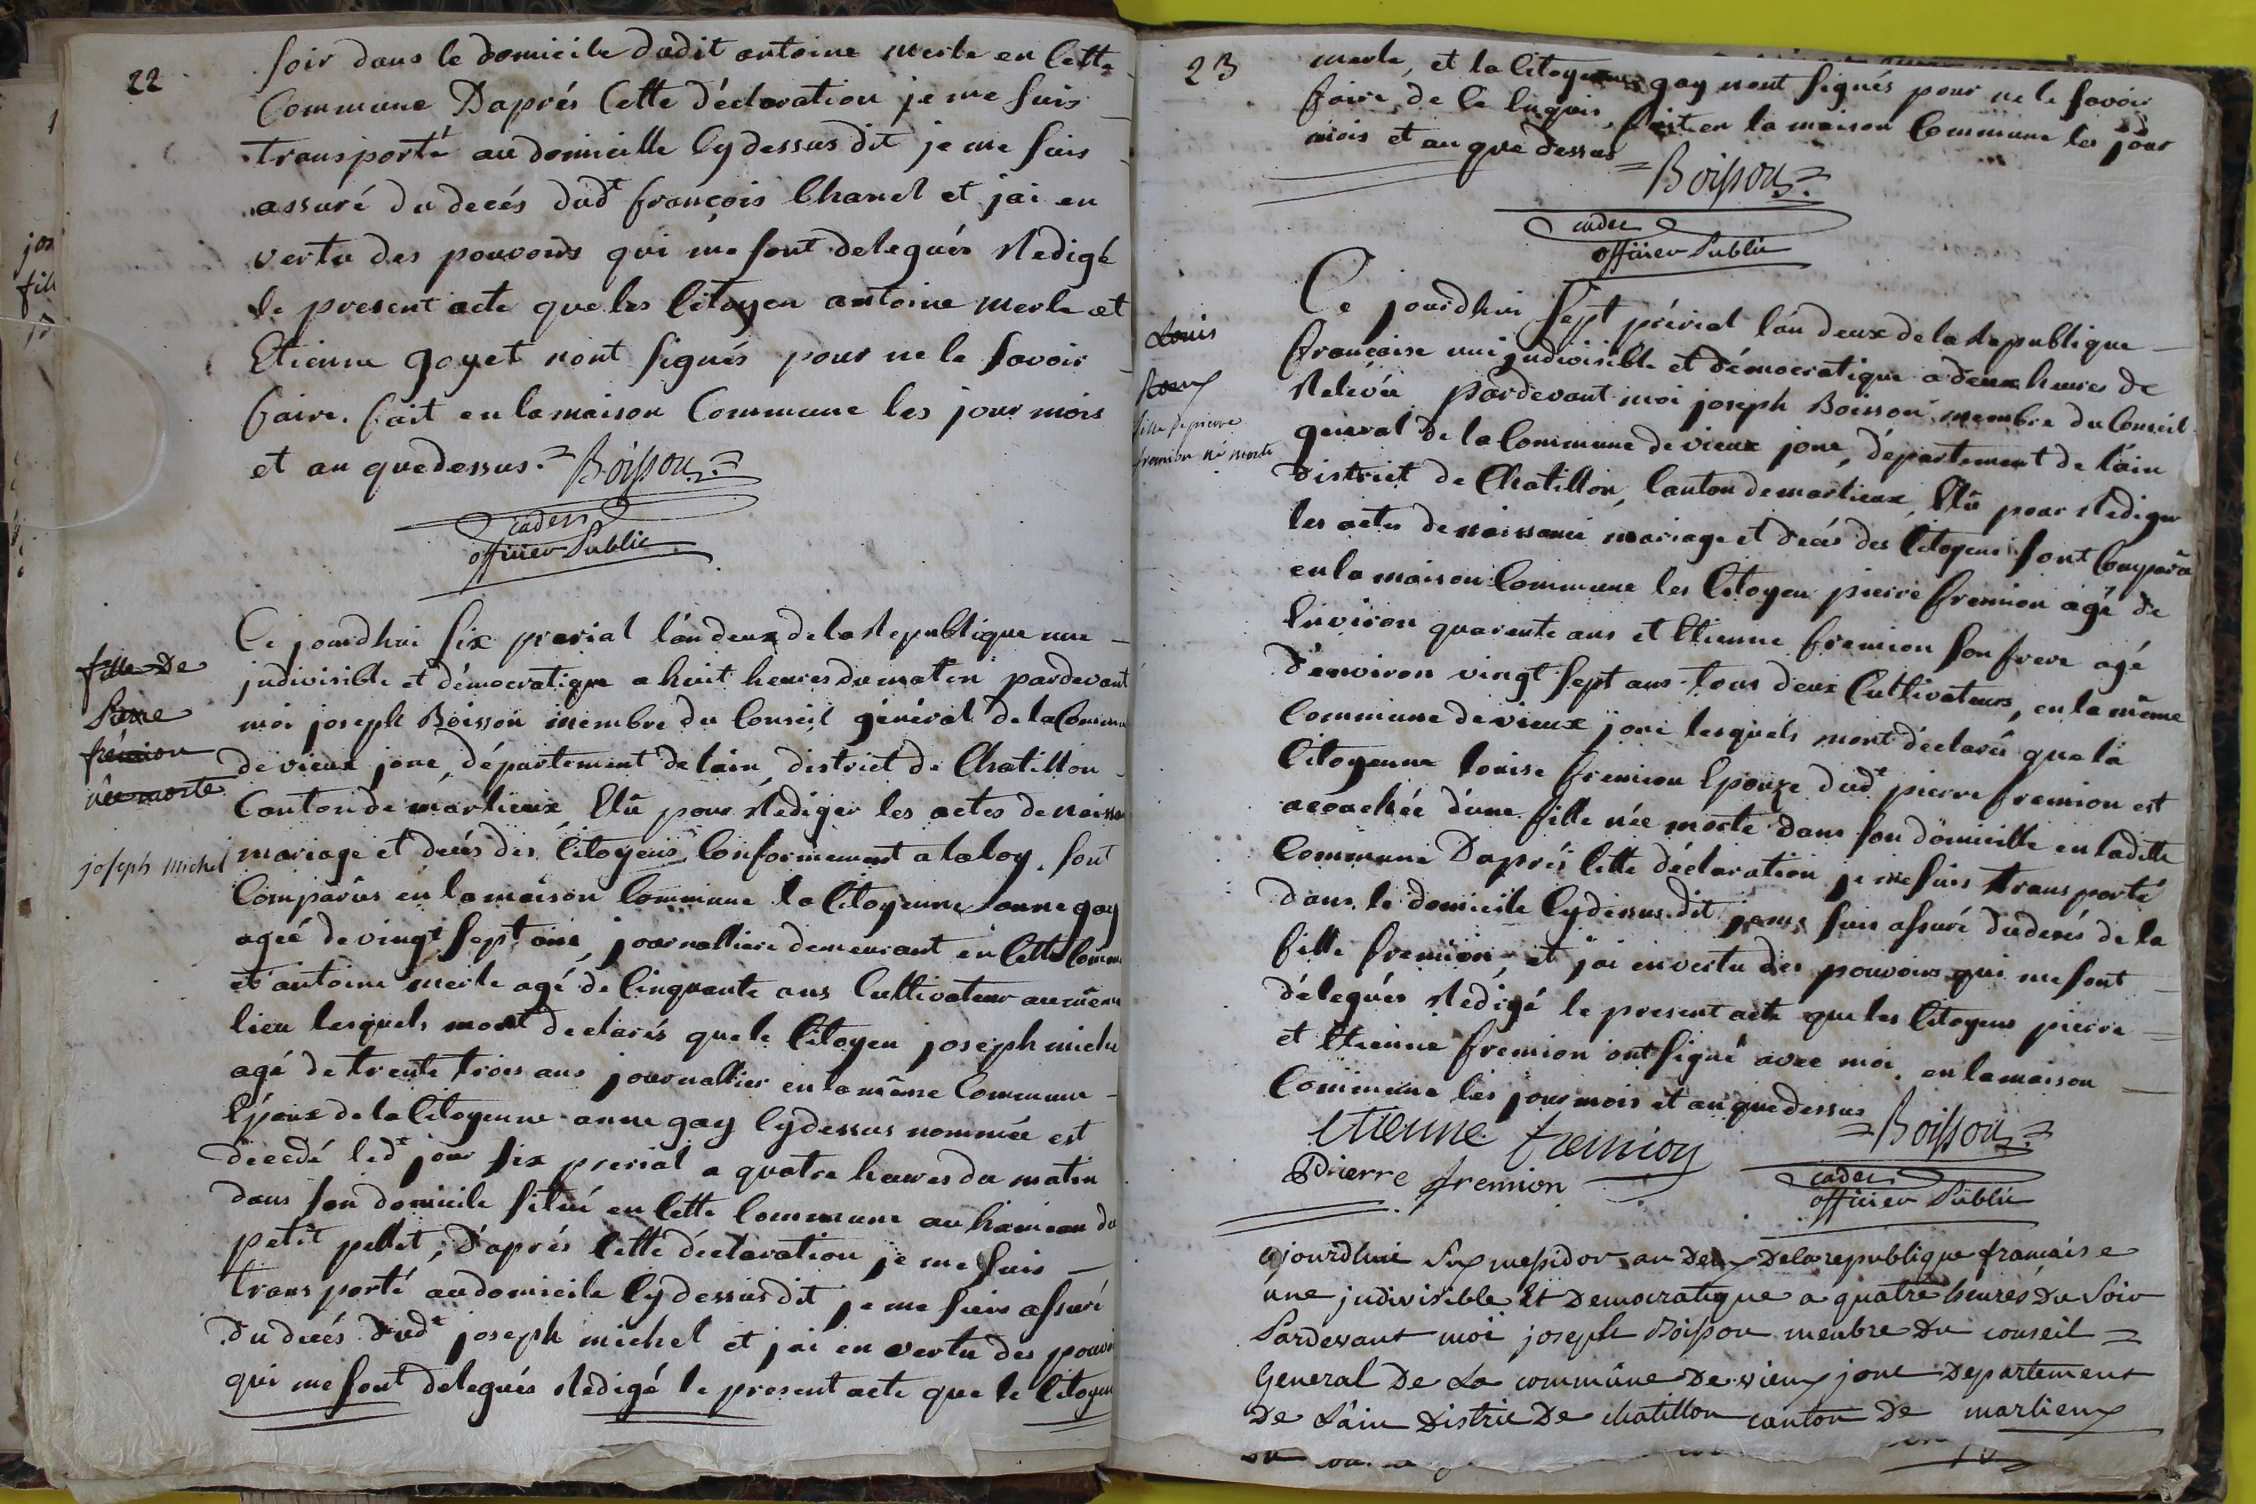 22
soir dans le domicile dudit antoine merle en Cette
Commune D'aprés Cette déclaration je me suis
transporté au domicille Cydessus dit je me suis
assuré du decés dud^t françois Chanel et jai en
vertu des pouvoirs qui me sont delegués Redigé
le present acte que les Citoyen antoine merle et
Etienne goyet nont signés pour ne le savoir
faire. fait en la maison Commune les jour mois
et an que dessus. = Boisson =
cadet
officier Public
fille De
Piere
frémion
née morte
joseph Michel
Ce jourdhui six prerial l'an deux de la Republique une
jndivisible et démocratique a huit heures du matin pardevant
moi joseph Boisson membre du Conseil général de la Commu
de vieux jonc, département de l'ain, district de Chatillon
Canton de marlieux, Elû pour Rediger les actes de naissa
mariage et decés des Citoyens Conformement a la loy. sont
Comparûs en la maison Commune la Citoyenne anne gay
ageé de vingt sept ans, journalliere demeurant en Cette Comm
et antoine merle agé de Cinquante ans Cultivateur au même
lieu lesquels mont declarés que le Citoyen joseph miche
agé de trente trois ans journallier en la même Commune
Epoux de la Citoyenne anne gay Cydessus nommée est
décedé led^t jour six prerial a quatre heures du matin
dans son domicile situé en Cette Commune au hameau du
petit pellet; D'aprés Cette déclaration je me suis
transporté au domicile Cydessus dit je me suis assuré
du decés dud^t joseph michel et jai en vertu des pouvoi
qui me sont delegués Redigé le present acte que le Citoyen
23
merle, et la Citoyenne gay nont signés pour ne le savoir
faire, de Ce Enquis, fait en la maison Commune les jour
mois et an que dessus = Boisson =
cadet
officier Public
Louis
Roux
fille de pierre
fremion né morte
Ce jourdhui sept prérial l'an deux de la Republique
française uni jndivisible et démocratique a deux heures de
Relevée pardevant moi joseph Boisson membre du Conseil
général de la Commune de vieux jonc, département de l'ain
District de Chatillon, Canton de marlieux, Elû pour Rediger
les actes de naissance mariage et decés des Citoyens sont Comparû
en la maison Commune les Citoyen pierre fremion agé de
Environ quarente ans et Etienne fremion son frere agé
d'environ vingt sept ans tous deux Cultivateurs, en la même
Commune de vieux jonc lesquels mont déclarés que la
Citoyenne louise fremion Epouze dud^t pierre fremion est
acouchée d'une fille née morte dans son domicille en ladite
Commune D'aprés Cette déclaration je me suis transporté
dans le domicile Cydessus dit je me suis assuré du decés de la
fille fremion, et j'ai en vertu des pouvoirs qui me sont
délegués Redigé le present acte que les Citoyens pierre
et Etienne fremion ont signé avec moi en la maison
Commune les jour mois et an que dessus
etienne fremion = Boisson =
Pierre fremion cadet
officier Public
ajourdhuie six messidor an deux De la republique francaise
une jndivisible Et Democratique a quatre heures Du Soir
Pardevant moi joseph Boisson menbre Du conseil =
General De La commûne De vieux jonc Departement
De L'ain District De chatillon canton De marlieux